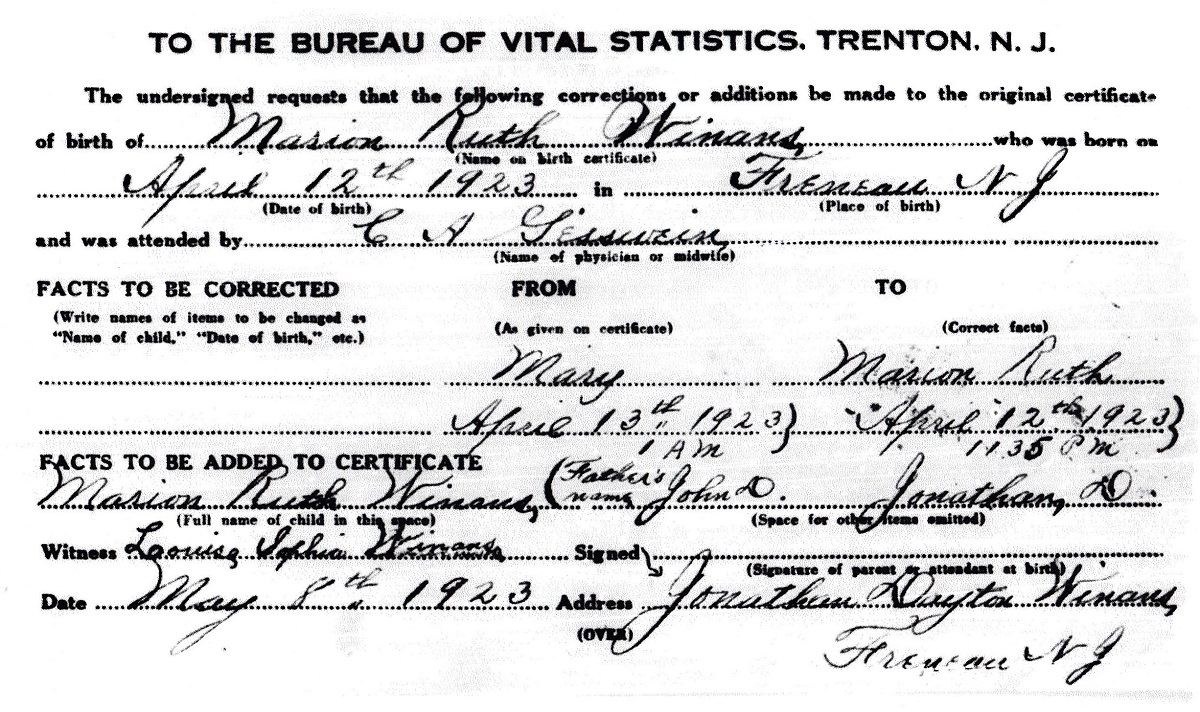 TO THE BUREAU OF VITAL STATISTICS. TRENTON. N. J.
The undersigned requests that the following corrections or additions be made to the original certificate
of birth of Marion Ruth Winans, who was born on
(Name on birth certificate)
April 12th 1923 in Freneau N J
(Date of birth) (Place of birth)
and was attended by C A Gesswein,
(Name of physician or midwife)
FACTS TO BE CORRECTED FROM TO
(Write names of items to be changed as
"Name of child," "Date of birth," etc.) (As given on certificate) (Correct facts)
Mary Marion Ruth
April 13th 1923 } April 12th 1923 }
1 AM 11 35 P M
FACTS TO BE ADDED TO CERTIFICATE
Marion Ruth Winans, (Father's name John D. Jonathan, D.
(Full name of child in this space) (Space for other items omitted)
Witness Louisa Sophia Winans, Signed
(Signature of parent or attendant at birth)
Date May 8th 1923 Address Jonathan Dayton Winans,
(OVER) Freneau N J